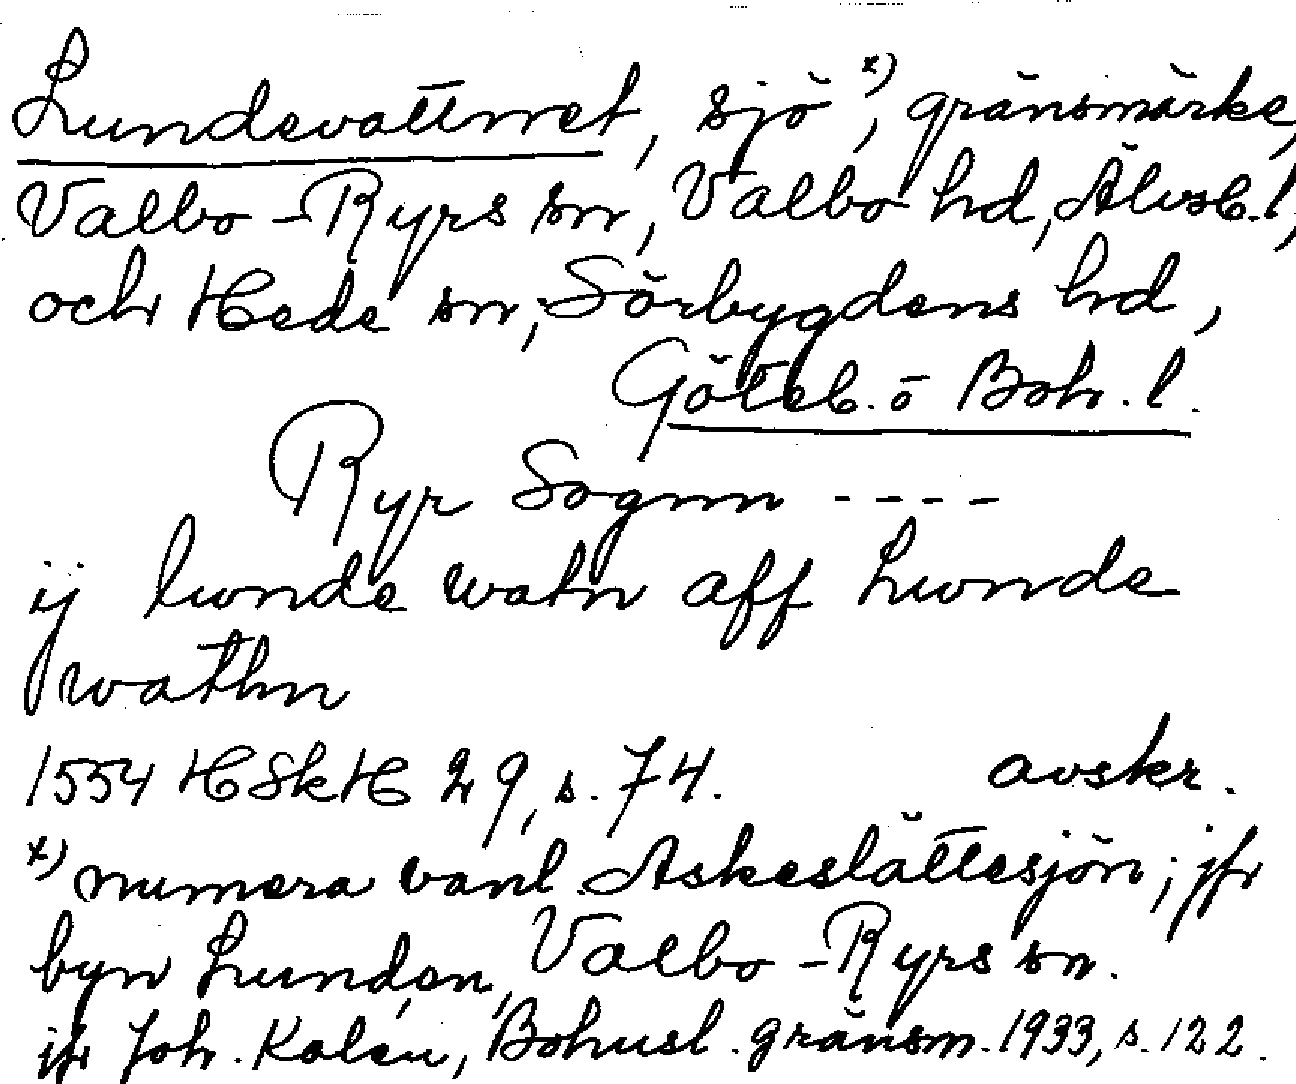 Lundevattnet, sjö x), gränsmärke,
Valbo-Ryrs sn, Valbo hd, Älvsb.l,
och Hede sn, Sörbygdens hd,
Göteb. o Boh. l.
Ryr Sognn ----
ij lunde watn aff Lunde
wathn
1554 HSkH 29, s. 74. avskr.
x) numera vanl. Askeslättesjön; jfr
byn Lunden, Valbo-Ryrs sn.
jfr Joh. Kalén, Bohusl. gränsm. 1933, s. 122.